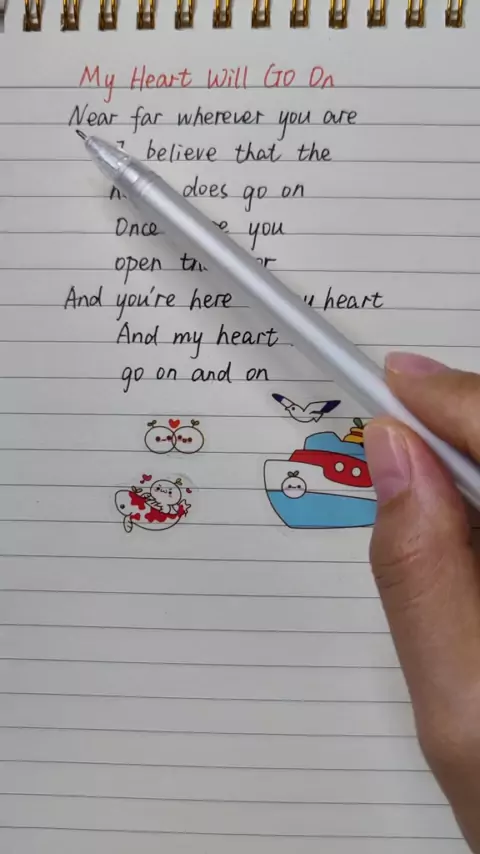 My Heart Will Go On
Near far wherever you are
I believe that the
does go on
Once you
open
And you're here heart
And my heart
go on and on